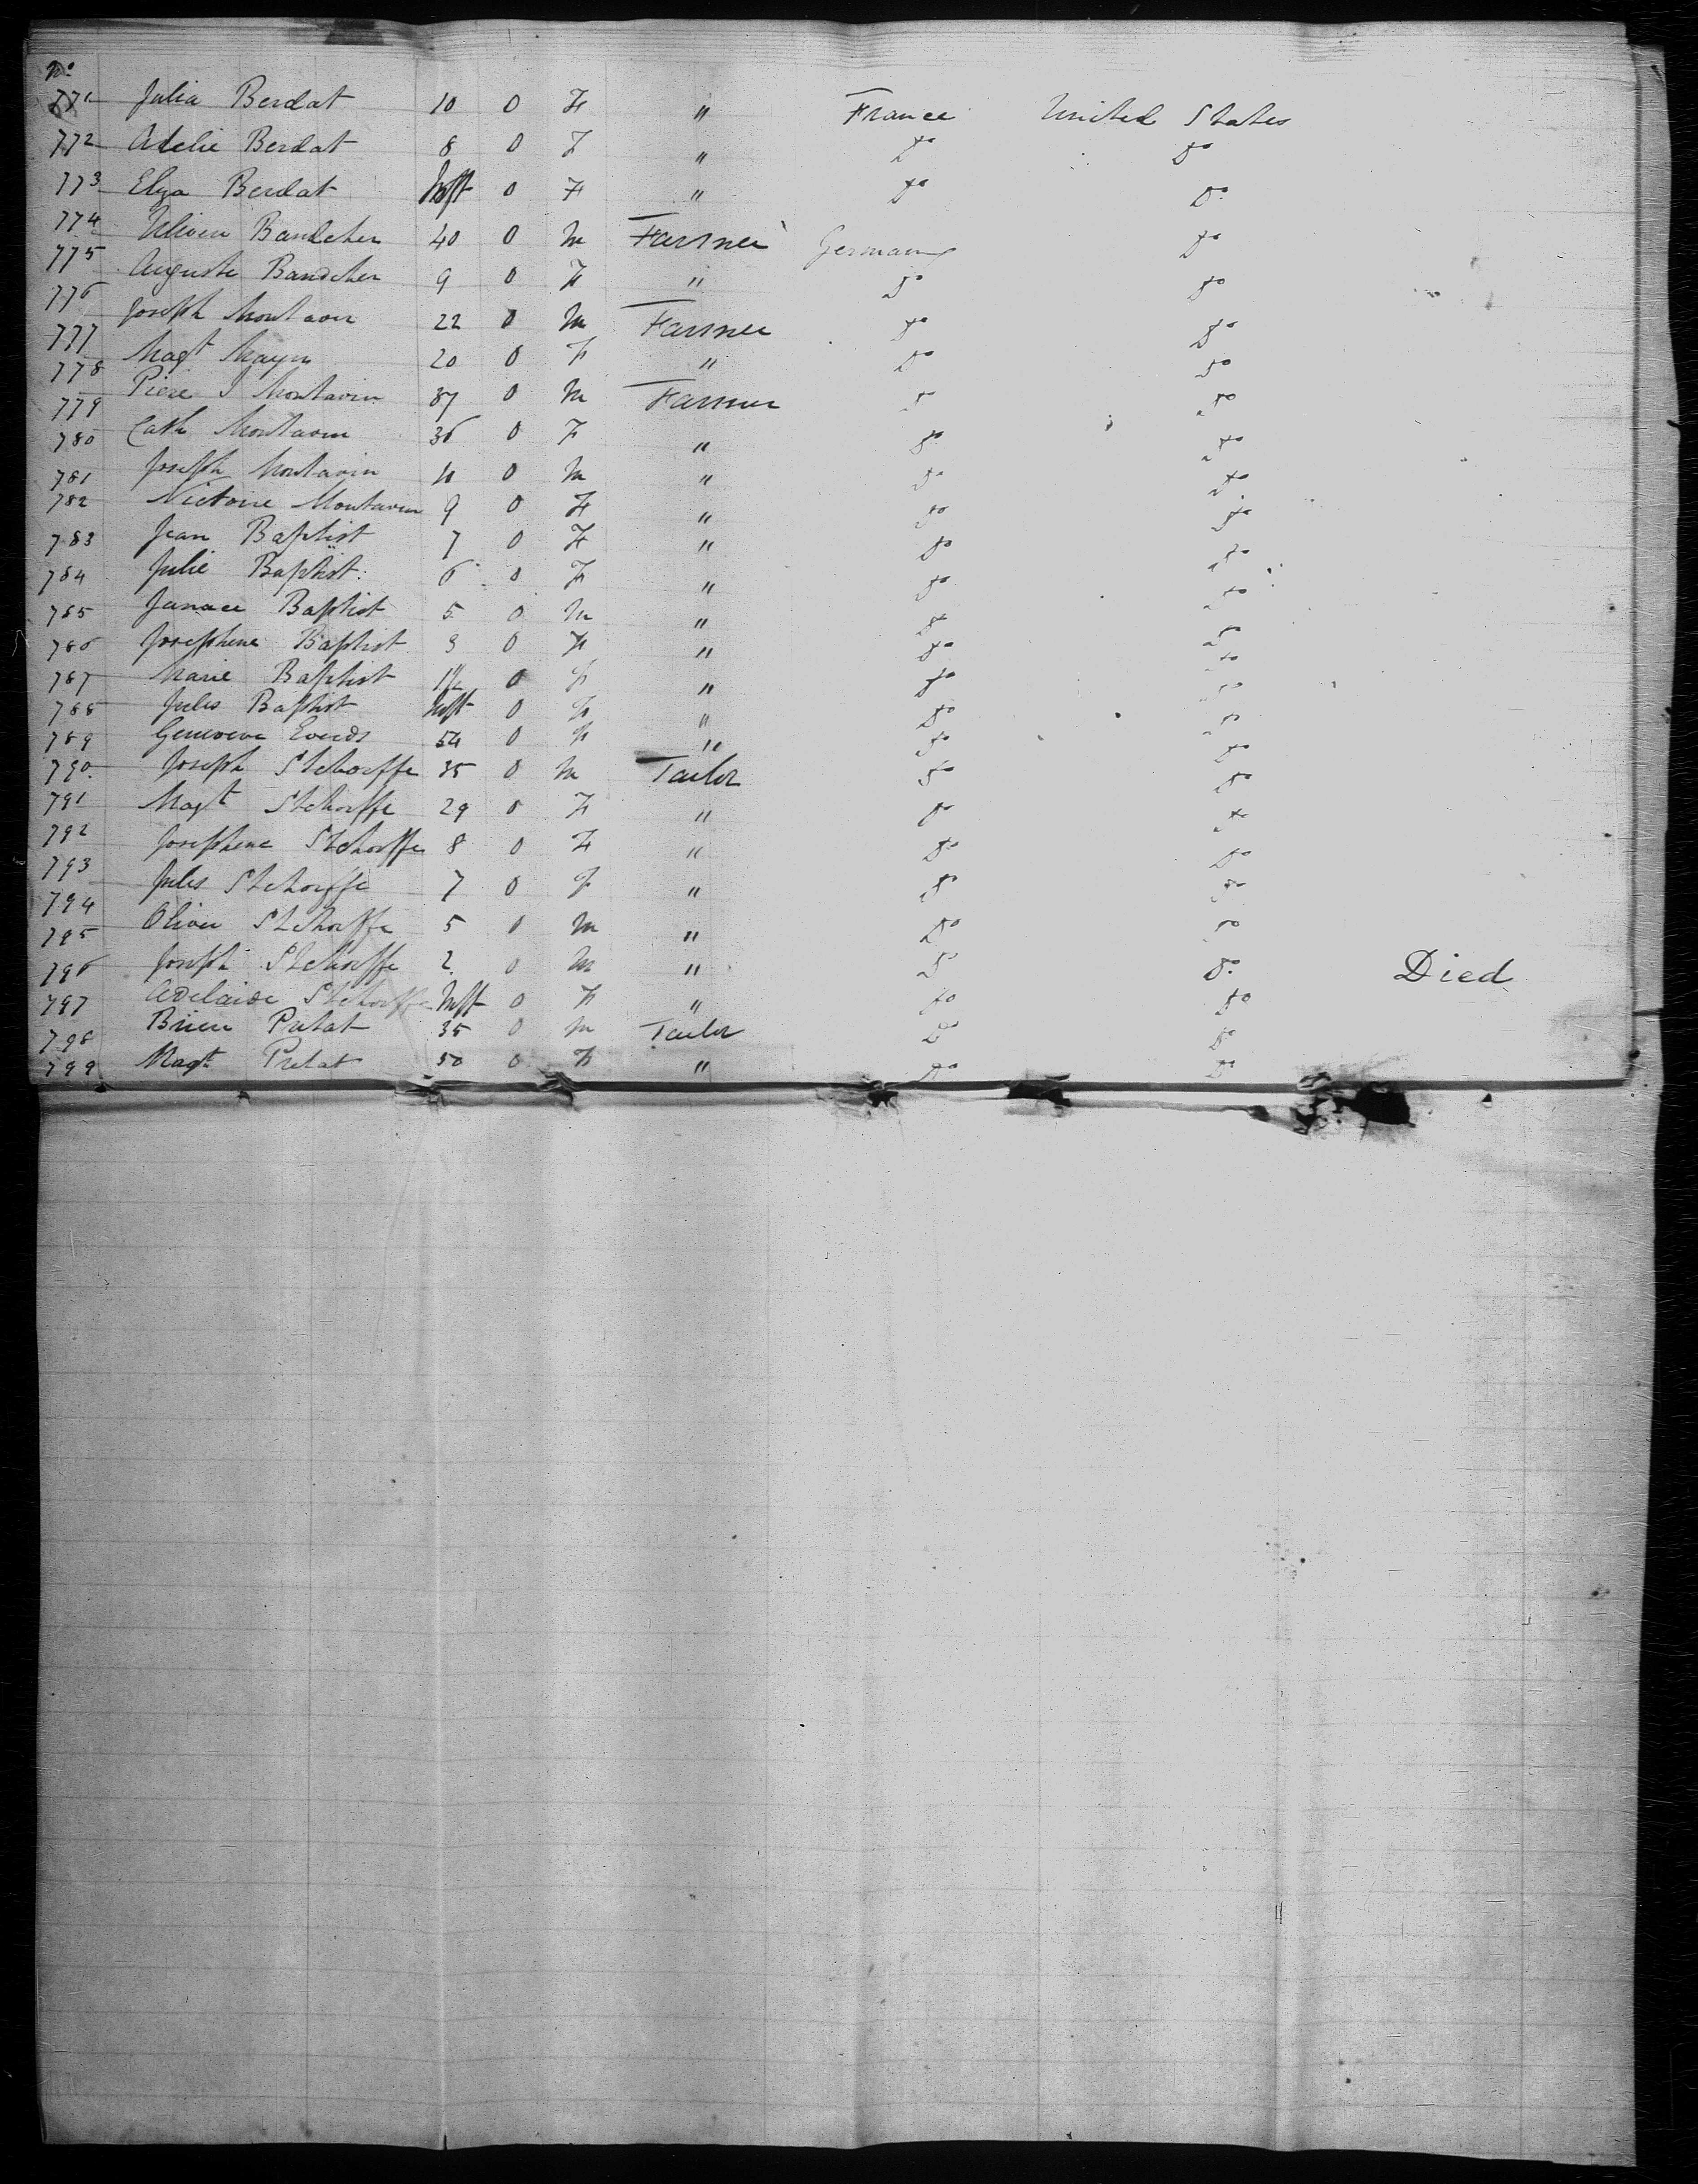 No
771 Julia Berdat 10 0 F " France United States
772 Adelie Berdat 8 0 F " Do Do
773 Elza Berdat Inft 0 F " Do Do
774 Bandcher 40 0 M Farmer Germany Do
775 Auguste Bandcher 9 0 F " Do Do
776 Joseph Montavin 22 0 M Farmer Do Do
777 Magt Mayin 20 0 F " Do Do
778 Piere J Montavin 37 0 M Farmer Do Do
779 Cath Montavin 36 0 F " Do Do
780 Joseph Montavin 10 0 M " Do Do
781 Victoire Montavin 9 0 F " Do Do
782 Jean Baptist 7 0 F " Do Do
783 Julie Baptist 6 0 F " Do Do
784 Baptist 5 0 M " Do Do
785 Josephine Baptist 3 0 F " Do Do
786 Marie Baptist 1½ 0 F " Do Do
787 Jules Baptist Inft 0 F " Do Do
788 Genevieve 54 0 F " Do Do
789 Joseph Stchorffe 35 0 M Tailor Do Do
790 Magt Stchorffe 29 0 F " Do Do
791 Josephine Stchorffe 8 0 F " Do Do
792 Jules Stchorffe 7 0 F " Do Do
793 Oliver Stchorffe 5 0 M " Do Do
794 Joseph Stchorffe 2 0 M " Do Do Died
795 Adelaide Stchorffe Inft 0 F " Do Do
796 Prelat 35 0 M Tailor Do Do
797 Magt Prelat 50 0 F " Do Do
798
799